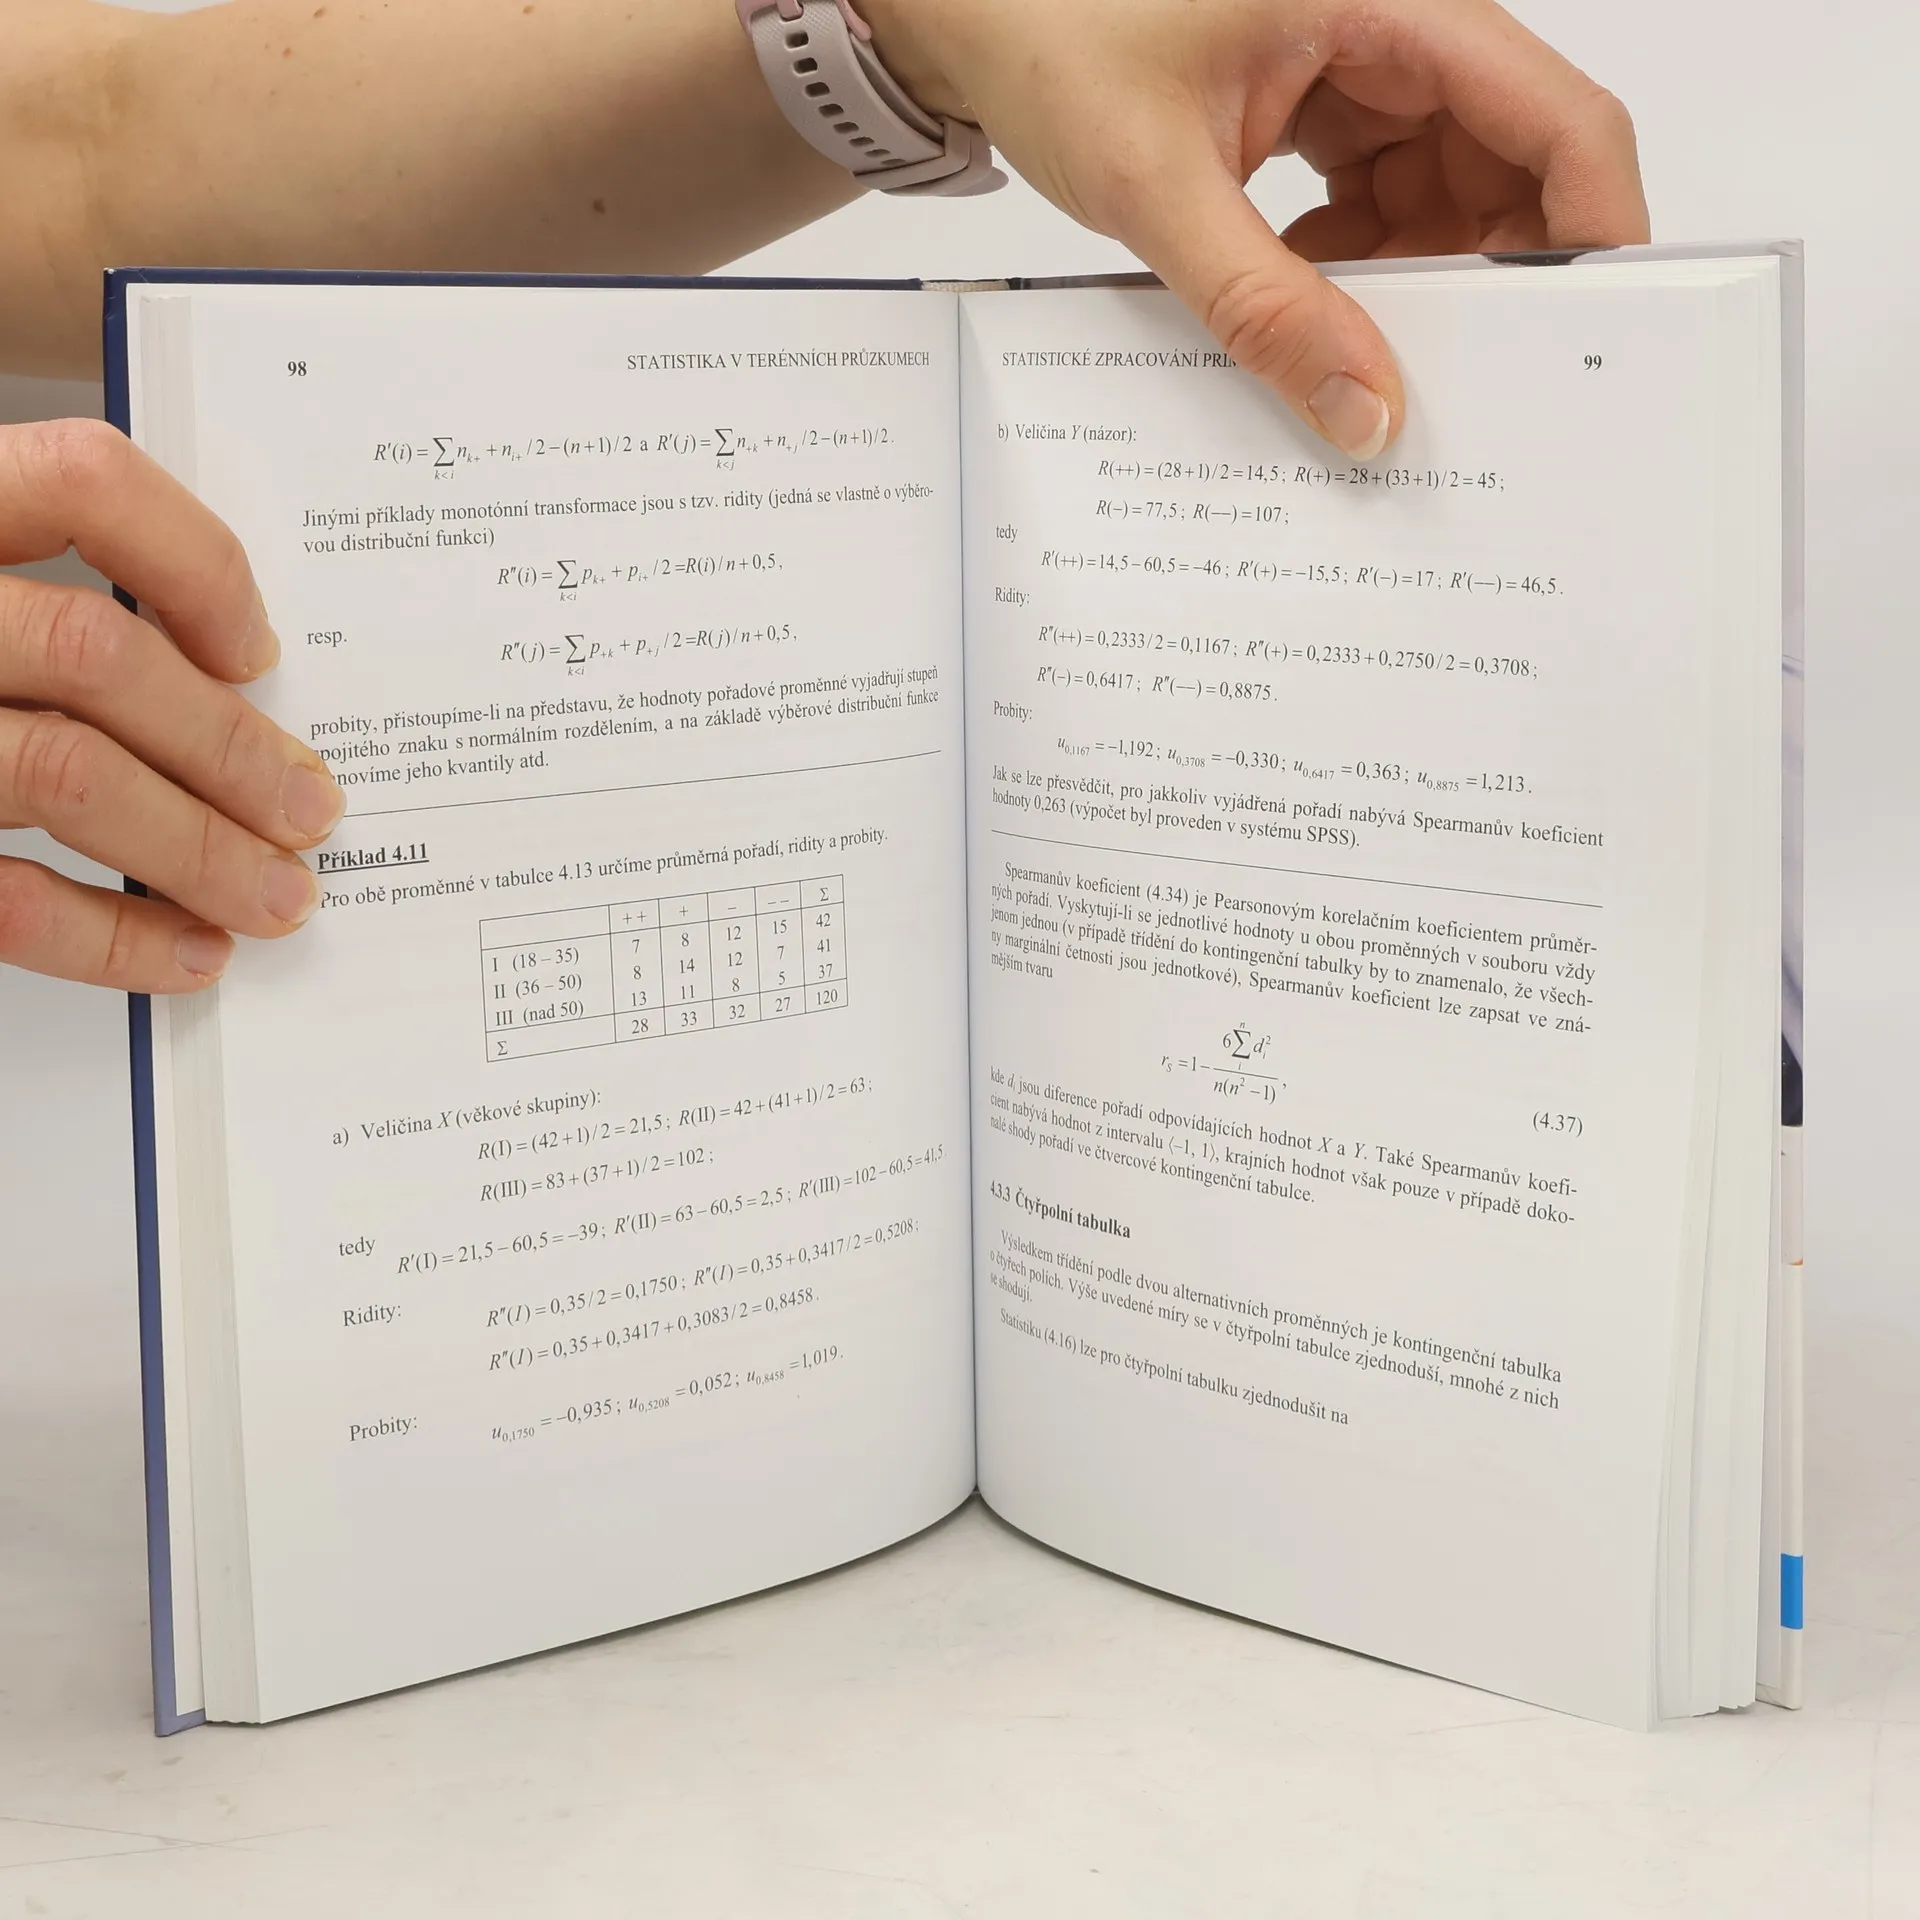 98 STATISTIKA V TERÉNNÍCH PRŮZKUMECH
R'(i) = ∑ n_{k+} + n_{i+} / 2 – (n+1) / 2 a R'(j) = ∑ n_{+k} + n_{+j} / 2 – (n+1) / 2 .
k<i k<j
Jinými příklady monotónní transformace jsou s tzv. ridity (jedná se vlastně o výběro-
vou distribuční funkci)
R"(i) = ∑ p_{k+} + p_{i+} / 2 = R(i) / n + 0,5 ,
k<i
resp.
R"(j) = ∑ p_{+k} + p_{+j} / 2 = R(j) / n + 0,5 ,
k<i
probity, přistoupíme-li na představu, že hodnoty pořadové proměnné vyjadřují stupeň
pojitého znaku s normálním rozdělením, a na základě výběrové distribuční funkce
novíme jeho kvantily atd.
Příklad 4.11
Pro obě proměnné v tabulce 4.13 určíme průměrná pořadí, ridity a probity.
++ + – – – Σ
I (18 – 35) 7 8 12 15 42
II (36 – 50) 8 14 12 7 41
III (nad 50) 13 11 8 5 37
Σ 28 33 32 27 120
a) Veličina X (věkové skupiny):
R(I) = (42 + 1) / 2 = 21,5 ; R(II) = 42 + (41 + 1) / 2 = 63 ;
R(III) = 83 + (37 + 1) / 2 = 102 ;
tedy
R'(I) = 21,5 – 60,5 = –39 ; R'(II) = 63 – 60,5 = 2,5 ; R'(III) = 102 – 60,5 = 41,5.
Ridity:
R"(I) = 0,35 / 2 = 0,1750 ; R"(I) = 0,35 + 0,3417 / 2 = 0,5208 ;
R"(I) = 0,35 + 0,3417 + 0,3083 / 2 = 0,8458 .
Probity:
u_{0,1750} = –0,935 ; u_{0,5208} = 0,052 ; u_{0,8458} = 1,019 .
STATISTICKÉ ZPRACOVÁNÍ 99
b) Veličina Y (názor):
R(++) = (28 + 1) / 2 = 14,5 ; R(+) = 28 + (33 + 1) / 2 = 45 ;
R(–) = 77,5 ; R(––) = 107 ;
tedy
R'(++) = 14,5 – 60,5 = –46 ; R'(+) = –15,5 ; R'(–) = 17 ; R'(––) = 46,5 .
Ridity:
R"(++) = 0,2333 / 2 = 0,1167 ; R"(+) = 0,2333 + 0,2750 / 2 = 0,3708 ;
R"(–) = 0,6417 ; R"(––) = 0,8875 .
Probity:
u_{0,1167} = –1,192 ; u_{0,3708} = –0,330 ; u_{0,6417} = 0,363 ; u_{0,8875} = 1,213 .
Jak se lze přesvědčit, pro jakkoliv vyjádřená pořadí nabývá Spearmanův koeficient
hodnoty 0,263 (výpočet byl proveden v systému SPSS).
Spearmanův koeficient (4.34) je Pearsonovým korelačním koeficientem průměr-
ných pořadí. Vyskytují-li se jednotlivé hodnoty u obou proměnných v souboru vždy
jenom jednou (v případě třídění do kontingenční tabulky by to znamenalo, že všech-
ny marginální četnosti jsou jednotkové), Spearmanův koeficient lze zapsat ve zná-
mějším tvaru
n
6∑ d_i^2
i
r_S = 1 – ,
n(n^2 – 1)
(4.37)
kde d_i jsou diference pořadí odpovídajících hodnot X a Y. Také Spearmanův koefi-
cient nabývá hodnot z intervalu ⟨–1, 1⟩, krajních hodnot však pouze v případě doko-
nalé shody pořadí ve čtvercové kontingenční tabulce.
4.3.3 Čtyřpolní tabulka
Výsledkem třídění podle dvou alternativních proměnných je kontingenční tabulka
o čtyřech polích. Výše uvedené míry se v čtyřpolní tabulce zjednoduší, mnohé z nich
se shodují.
Statistiku (4.16) lze pro čtyřpolní tabulku zjednodušit na